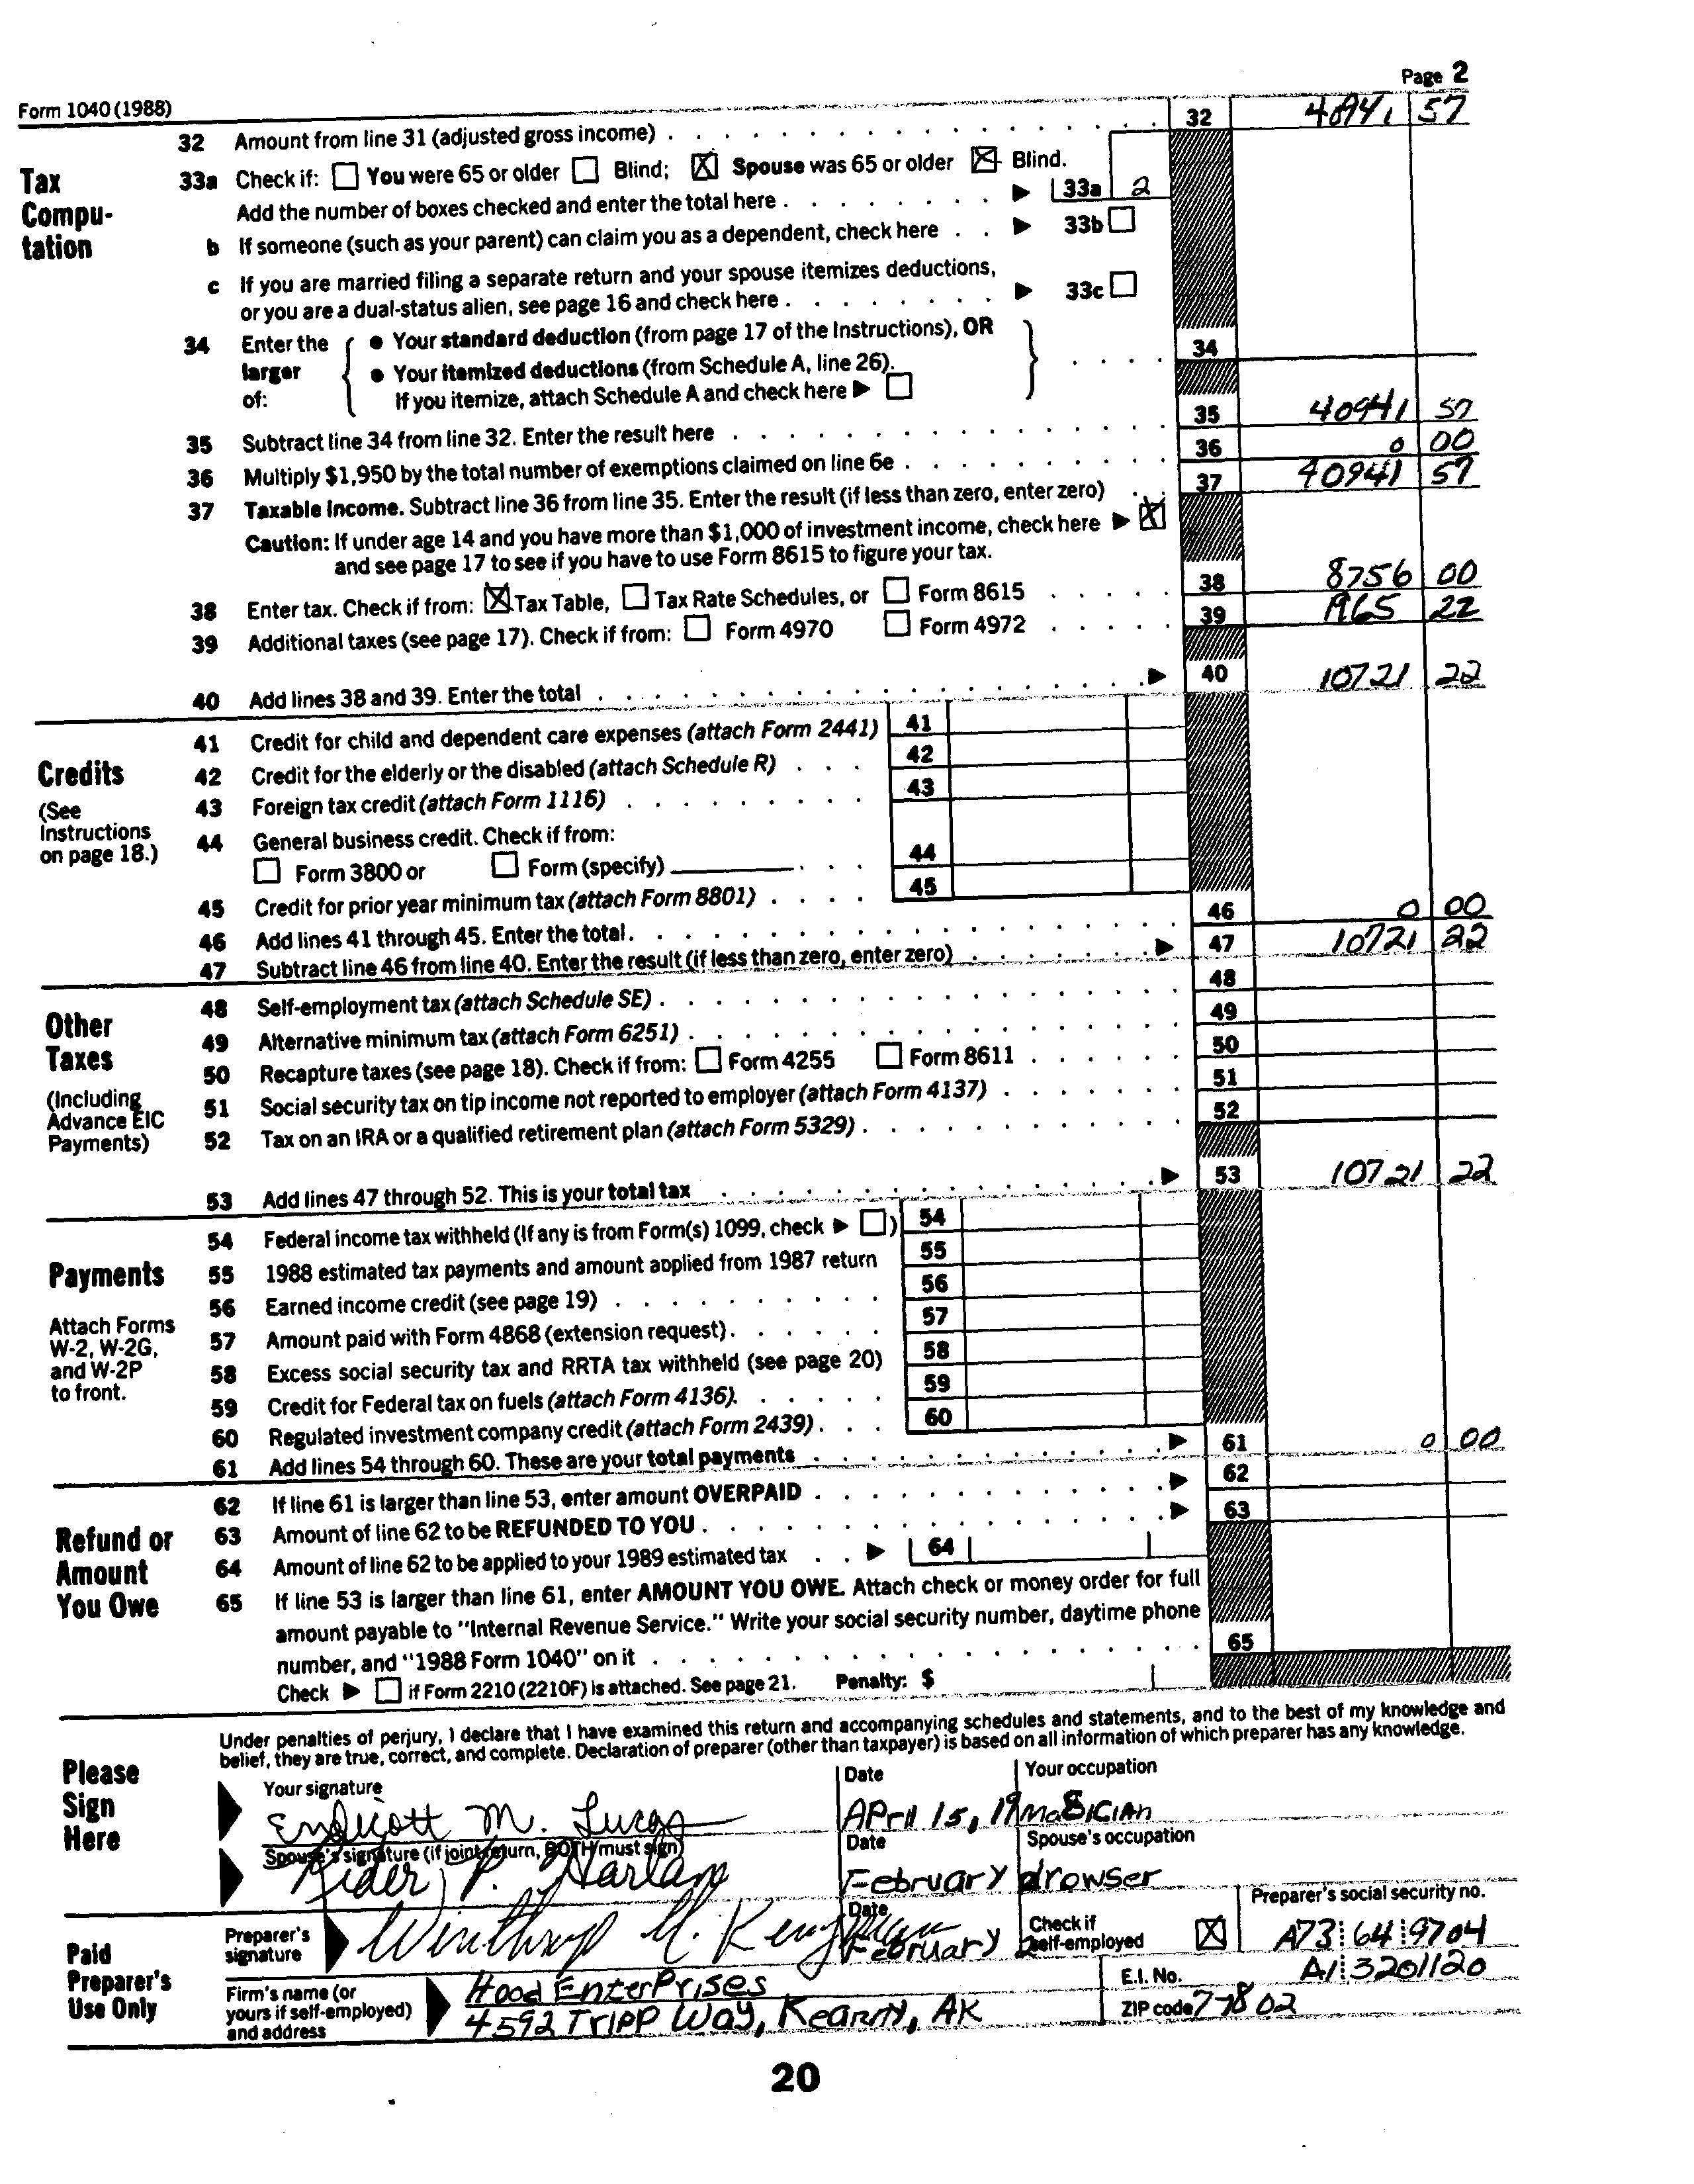 Page 2
Form 1040 (1988)
32 Amount from line 31 (adjusted gross income) 32 40941 57
Tax Computation
33a Check if: You were 65 or older Blind; X Spouse was 65 or older X Blind.
Add the number of boxes checked and enter the total here 33a 2
b If someone (such as your parent) can claim you as a dependent, check here 33b
c If you are married filing a separate return and your spouse itemizes deductions,
or you are a dual-status alien, see page 16 and check here 33c
34 Enter the larger of:
● Your standard deduction (from page 17 of the Instructions), OR
● Your itemized deductions (from Schedule A, line 26).
If you itemize, attach Schedule A and check here
34
35 Subtract line 34 from line 32. Enter the result here 35 40941 57
36 Multiply $1,950 by the total number of exemptions claimed on line 6e 36 0 00
37 Taxable income. Subtract line 36 from line 35. Enter the result (if less than zero, enter zero) 37 40941 57
Caution: If under age 14 and you have more than $1,000 of investment income, check here X
and see page 17 to see if you have to use Form 8615 to figure your tax.
38 Enter tax. Check if from: X Tax Table, Tax Rate Schedules, or Form 8615 38 8756 00
39 Additional taxes (see page 17). Check if from: Form 4970 Form 4972 39 1965 22
40 Add lines 38 and 39. Enter the total 40 10721 22
Credits
(See Instructions on page 18.)
41 Credit for child and dependent care expenses (attach Form 2441) 41
42 Credit for the elderly or the disabled (attach Schedule R) 42
43 Foreign tax credit (attach Form 1116) 43
44 General business credit. Check if from:
Form 3800 or Form (specify) 44
45 Credit for prior year minimum tax (attach Form 8801) 45
46 Add lines 41 through 45. Enter the total. 46 0 00
47 Subtract line 46 from line 40. Enter the result (if less than zero, enter zero) 47 10721 22
Other Taxes
(Including Advance EIC Payments)
48 Self-employment tax (attach Schedule SE) 48
49 Alternative minimum tax (attach Form 6251) 49
50 Recapture taxes (see page 18). Check if from: Form 4255 Form 8611 50
51 Social security tax on tip income not reported to employer (attach Form 4137) 51
52 Tax on an IRA or a qualified retirement plan (attach Form 5329) 52
53 Add lines 47 through 52. This is your total tax 53 10721 22
Payments
Attach Forms W-2, W-2G, and W-2P to front.
54 Federal income tax withheld (If any is from Form(s) 1099, check ) 54
55 1988 estimated tax payments and amount applied from 1987 return 55
56 Earned income credit (see page 19) 56
57 Amount paid with Form 4868 (extension request) 57
58 Excess social security tax and RRTA tax withheld (see page 20) 58
59 Credit for Federal tax on fuels (attach Form 4136) 59
60 Regulated investment company credit (attach Form 2439) 60
61 Add lines 54 through 60. These are your total payments 61 0 00
Refund or Amount You Owe
62 If line 61 is larger than line 53, enter amount OVERPAID 62
63 Amount of line 62 to be REFUNDED TO YOU 63
64 Amount of line 62 to be applied to your 1989 estimated tax 64
65 If line 53 is larger than line 61, enter AMOUNT YOU OWE. Attach check or money order for full
amount payable to "Internal Revenue Service." Write your social security number, daytime phone
number, and "1988 Form 1040" on it 65
Check if Form 2210 (2210F) is attached. See page 21. Penalty: $
Please Sign Here
Under penalties of perjury, I declare that I have examined this return and accompanying schedules and statements, and to the best of my knowledge and
belief, they are true, correct, and complete. Declaration of preparer (other than taxpayer) is based on all information of which preparer has any knowledge.
Your signature Date Your occupation
Endicott M. Lucas April 15, 19 Musician
Spouse's signature (if joint return, BOTH must sign) Date Spouse's occupation
Rider P. Harlan February drowser
Paid Preparer's Use Only
Preparer's signature Winthrop M. Date February 2 Check if self-employed X Preparer's social security no. A73 64 9704
Firm's name (or yours if self-employed) and address
Hood Enterprises E.I. No. A1 3201120
4592 Tripp Way, Kearny, AK ZIP code 77802
20